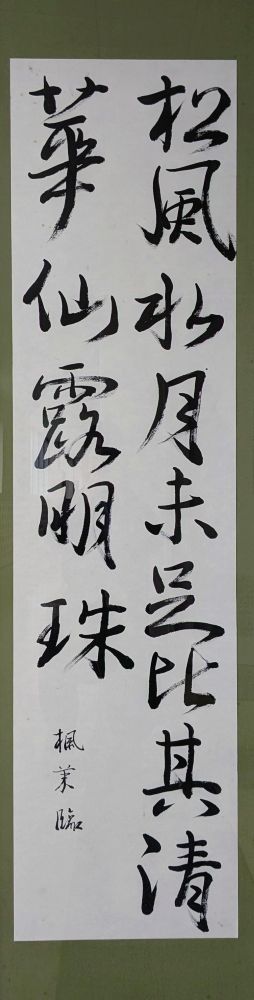 松風水月未足比其清
華仙露明珠
楓葉臨